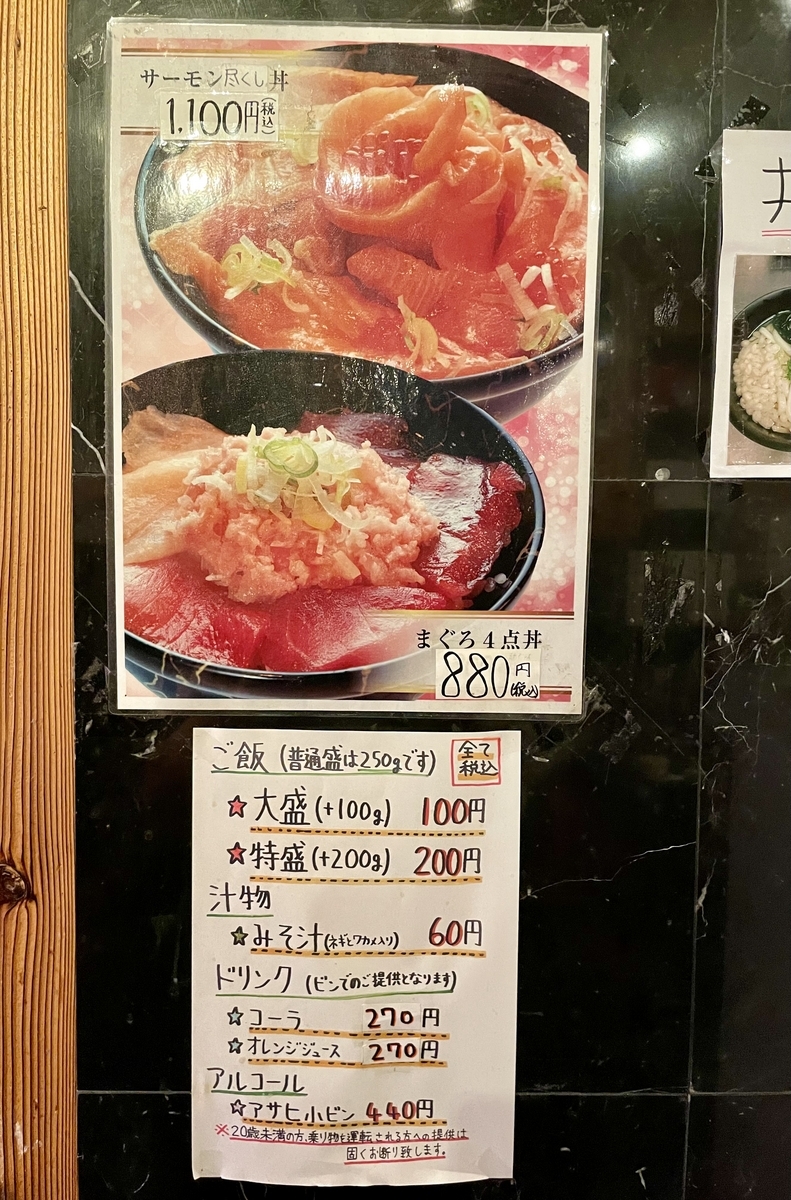 サーモン尽くし丼
1,100円税込
まぐろ4点丼
880円(税込)
ご飯 (普通盛は250gです) 全て税込
☆大盛(+100g) 100円
☆特盛(+200g) 200円
汁物
☆みそ汁(ネギとワカメ入り) 60円
ドリンク (ビンでのご提供となります)
☆コーラ 270円
☆オレンジジュース 270円
アルコール
☆アサヒ小ビン 440円
※20歳未満の方、乗り物を運転される方への提供は
固くお断り致します。